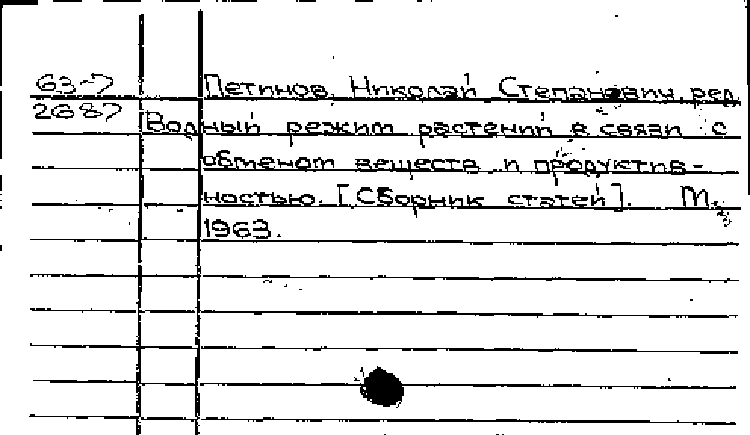 63-7 Петинов, Николай Степанович, ред.
2687 Водный режим растений в связи с
обменом веществ и продуктив-
ностью. [Сборник статей]. М.,
1963.